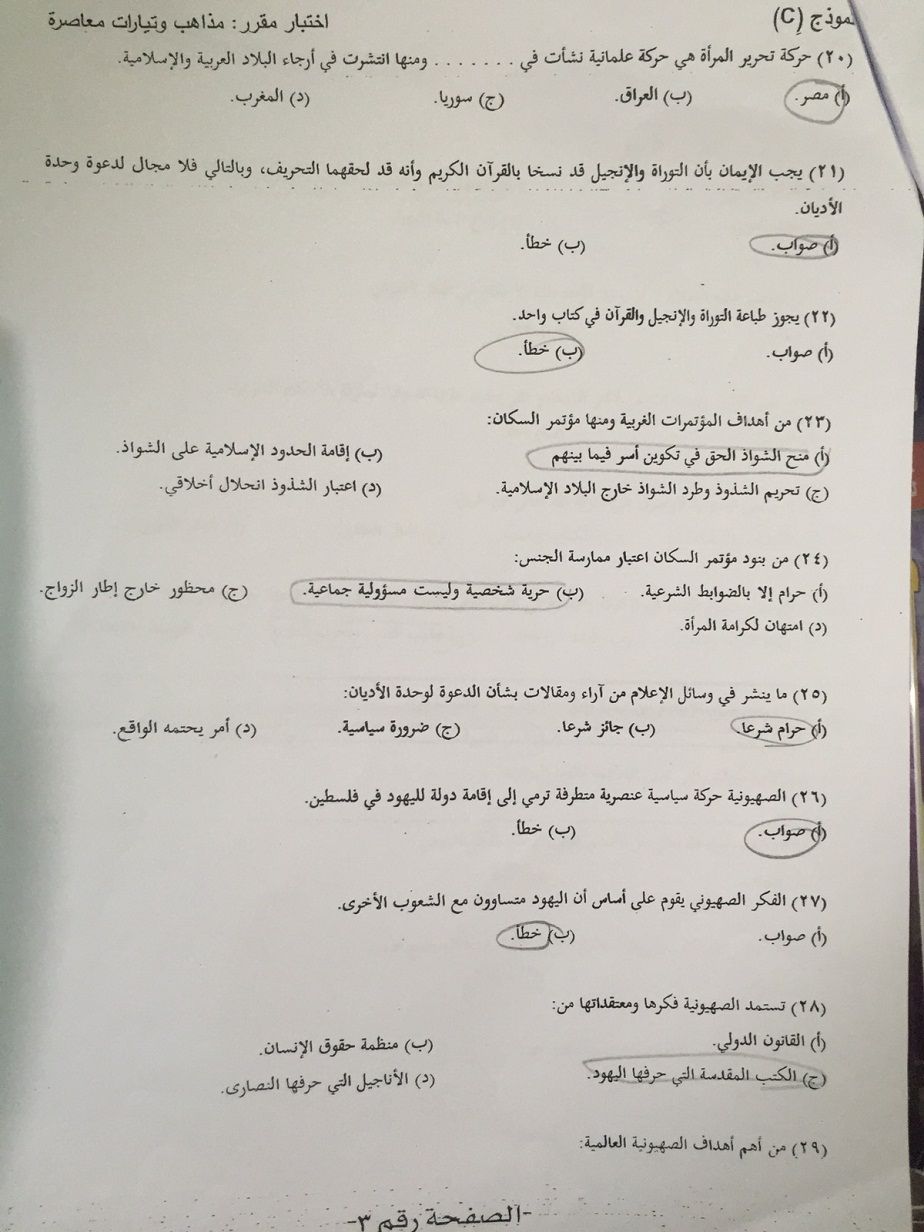 نموذج (C) اختبار مقرر: مذاهب وتيارات معاصرة
(٢٠) حركة تحرير المرأة هي حركة علمانية نشأت في . . . . . . . ومنها انتشرت في أرجاء البلاد العربية والإسلامية.
(أ) مصر. (ب) العراق. (ج) سوريا. (د) المغرب.
(٢١) يجب الإيمان بأن التوراة والإنجيل قد نسخا بالقرآن الكريم وأنه قد لحقهما التحريف، وبالتالي فلا مجال لدعوة وحدة
الأديان.
(أ) صواب. (ب) خطأ.
(٢٢) يجوز طباعة التوراة والإنجيل والقرآن في كتاب واحد.
(أ) صواب. (ب) خطأ.
(٢٣) من أهداف المؤتمرات الغربية ومنها مؤتمر السكان:
(أ) منح الشواذ الحق في تكوين أسر فيما بينهم (ب) إقامة الحدود الإسلامية على الشواذ.
(ج) تحريم الشذوذ وطرد الشواذ خارج البلاد الإسلامية. (د) اعتبار الشذوذ انحلال أخلاقي.
(٢٤) من بنود مؤتمر السكان اعتبار ممارسة الجنس:
(أ) حرام إلا بالضوابط الشرعية. (ب) حرية شخصية وليست مسؤولية جماعية. (ج) محظور خارج إطار الزواج.
(د) امتهان لكرامة المرأة.
(٢٥) ما ينشر في وسائل الإعلام من آراء ومقالات بشأن الدعوة لوحدة الأديان:
(أ) حرام شرعا. (ب) جائز شرعا. (ج) ضرورة سياسية. (د) أمر يحتمه الواقع.
(٢٦) الصهيونية حركة سياسية عنصرية متطرفة ترمي إلى إقامة دولة لليهود في فلسطين.
(أ) صواب. (ب) خطأ.
(٢٧) الفكر الصهيوني يقوم على أساس أن اليهود متساوون مع الشعوب الأخرى.
(أ) صواب. (ب) خطأ.
(٢٨) تستمد الصهيونية فكرها ومعتقداتها من:
(أ) القانون الدولي. (ب) منظمة حقوق الإنسان.
(ج) الكتب المقدسة التي حرفها اليهود. (د) الأناجيل التي حرفها النصارى.
(٢٩) من أهم أهداف الصهيونية العالمية:
-الصفحة رقم ٣-